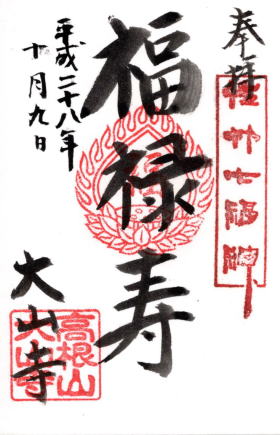 奉拝
七福神
福禄寿
平成二十八年
十月九日
大山寺
高根山
大山寺